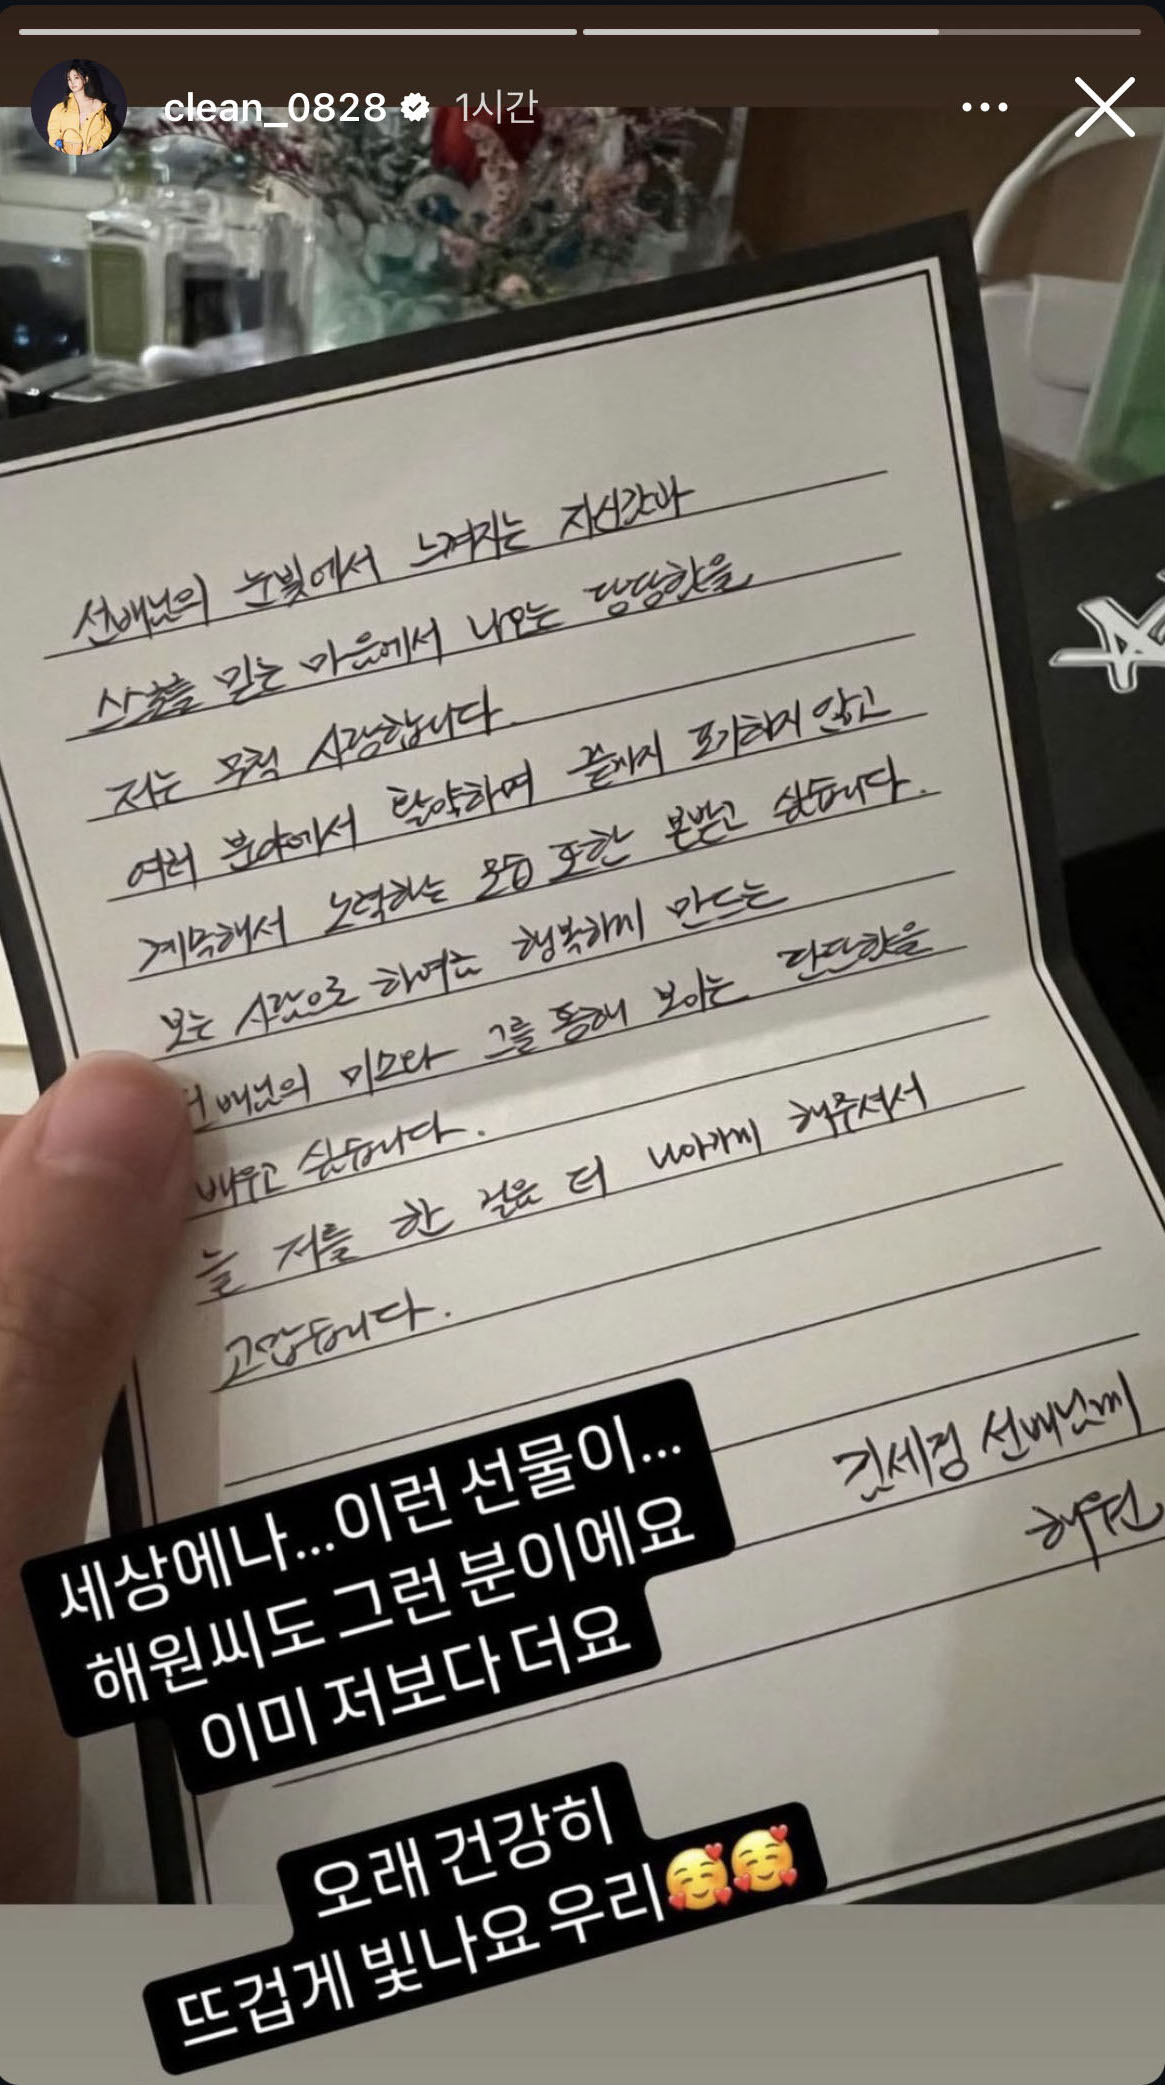 clean_0828 1시간
선배님의 눈빛에서 느껴지는 자신감과
스스로를 믿는 마음에서 나오는 당당함을
저는 무척 사랑합니다.
여러 분야에서 활약하며 끝까지 포기하지 않고
계속해서 노력하는 모습 또한 본받고 싶습니다.
보는 사람으로 하여금 행복하게 만드는
선배님의 미소와 그를 통해 보이는 단단함을
배우고 싶습니다.
늘 저를 한 걸음 더 나아가게 해주셔서
고맙습니다.
김세정 선배님께
해원
세상에나...이런 선물이...
해원씨도 그런 분이에요
이미 저보다 더요
오래 건강히
뜨겁게 빛나요 우리🥰🥰